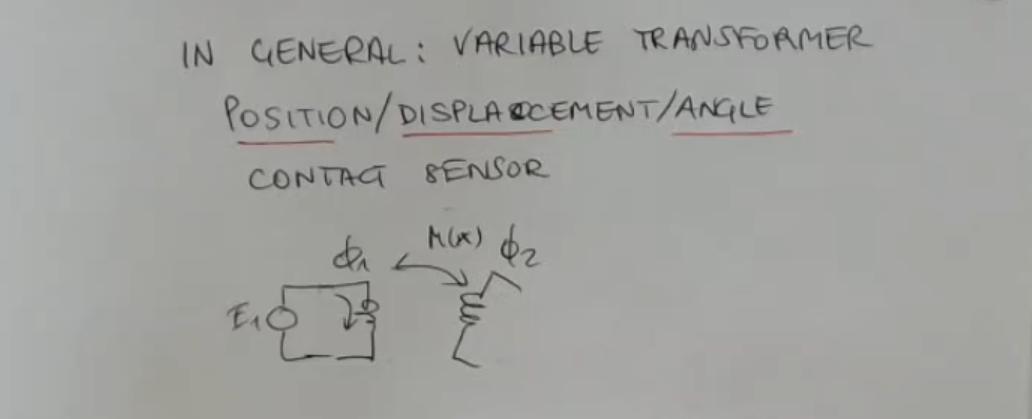 IN GENERAL: VARIABLE TRANSFORMER
POSITION/DISPLACEMENT/ANGLE
CONTACT SENSOR
ϕ1 M(x) ϕ2
E1